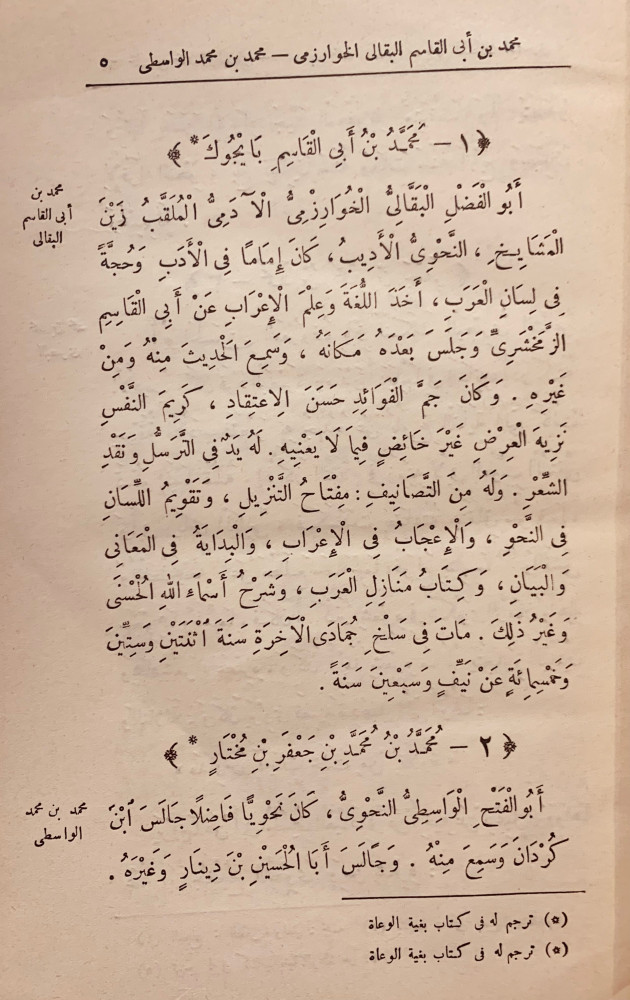 محمد بن أبى القاسم البقالى الخوارزمى — محمد بن محمد الواسطى ٥
﴿ ١ — مُحَمَّدُ بْنُ أَبِي الْقَاسِمِ بَايْجُوكَ * ﴾
محمد بن
أبى القاسم
البقالى
أَبُو الْفَضْلِ الْبَقَّالِىُّ الْخُوَارِزْمِىُّ الْآدَمِىُّ الْمُلَقَّبُ زَيْنَ
الْمَشَايِخِ ، النَّحْوِىُّ الْأَدِيبُ ، كَانَ إِمَامًا فِى الْأَدَبِ وَحُجَّةً
فِى لِسَانِ الْعَرَبِ ، أَخَذَ اللُّغَةَ وَعِلْمَ الْإِعْرَابِ عَنْ أَبِى الْقَاسِمِ
الزَّمَخْشَرِىِّ وَجَلَسَ بَعْدَهُ مَكَانَهُ ، وَسَمِعَ الْحَدِيثَ مِنْهُ وَمِنْ
غَيْرِهِ . وَكَانَ جَمَّ الْفَوَائِدِ حَسَنَ الِاعْتِقَادِ ، كَرِيمَ النَّفْسِ
نَزِيهَ الْعِرْضِ غَيْرَ خَائِضٍ فِيمَا لَا يَعْنِيهِ . لَهُ يَدٌ فِى التَّرَسُّلِ وَنَقْدِ
الشِّعْرِ . وَلَهُ مِنَ التَّصَانِيفِ : مِفْتَاحُ التَّنْزِيلِ ، وَتَقْوِيمُ اللِّسَانِ
فِى النَّحْوِ ، وَالْإِعْجَابُ فِى الْإِعْرَابِ ، وَالْبِدَايَةُ فِى الْمَعَانِى
وَالْبَيَانِ ، وَكِتَابُ مَنَازِلِ الْعَرَبِ ، وَشَرْحُ أَسْمَاءِ اللهِ الْحُسْنَى
وَغَيْرُ ذَلِكَ . مَاتَ فِى سَلْخِ جُمَادَى الْآخِرَةِ سَنَةَ اثْنَتَيْنِ وَسِتِّينَ
وَخَمْسِمِائَةٍ عَنْ نَيِّفٍ وَسَبْعِينَ سَنَةً .
﴿ ٢ — مُحَمَّدُ بْنُ مُحَمَّدِ بْنِ جَعْفَرِ بْنِ مُخْتَارٍ * ﴾
محمد بن محمد
الواسطى
أَبُو الْفَتْحِ الْوَاسِطِىُّ النَّحْوِىُّ ، كَانَ نَحْوِيًّا فَاضِلًا جَالَسَ ابْنَ
كُرْدَانَ وَسَمِعَ مِنْهُ . وَجَالَسَ أَبَا الْحُسَيْنِ بْنَ دِينَارٍ وَغَيْرَهُ .
(*) ترجم له فى كتاب بغية الوعاة
(*) ترجم له فى كتاب بغية الوعاة